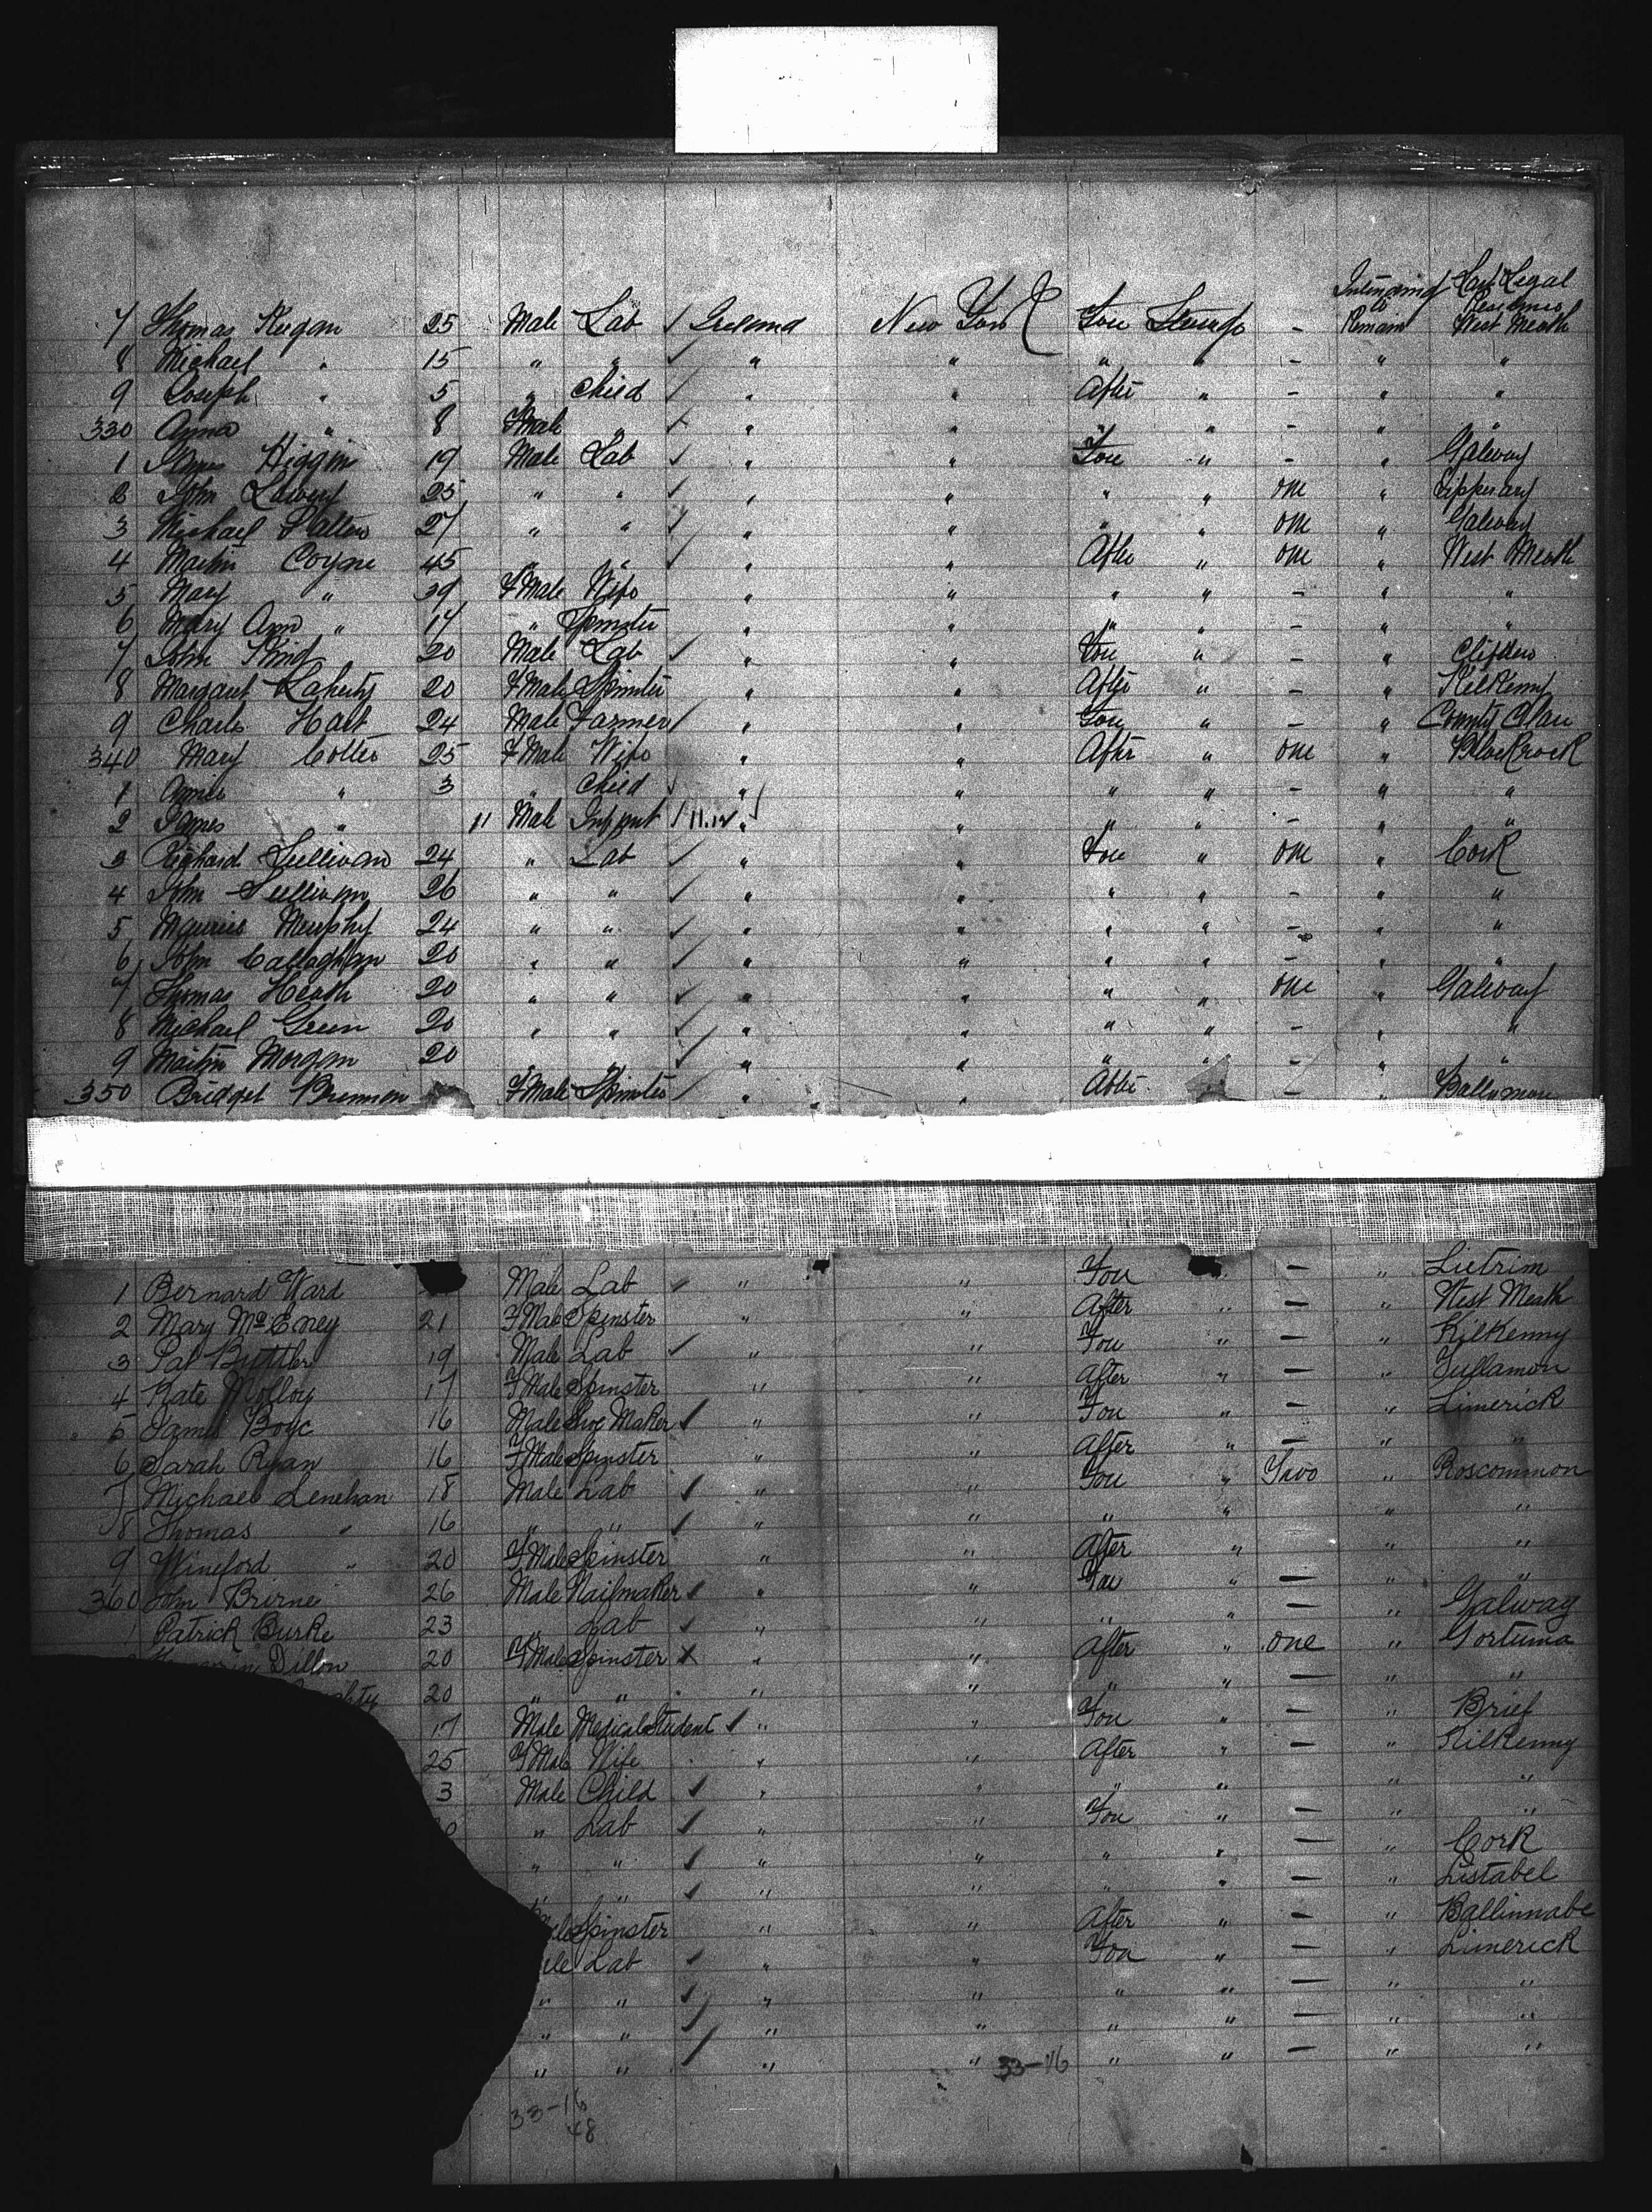 Intending to Remain Last Legal Residence
7 Thomas Keegan 25 Male Lab ✓ Ireland New York Fou Steerage - West Meath
8 Michael " 15 " " ✓ " " " " - " "
9 Joseph " 5 " Child ✓ " " After " - " "
330 Anna " 8 FMale " ✓ " " " " - " "
1 James Higgin 19 Male Lab ✓ " " Fou " - " Galway
2 John 25 " " ✓ " " " " one " Tipperary
3 Michael 27 " " ✓ " " " " one " Galway
4 Martin Coyne 45 " " ✓ " " After " one " West Meath
5 Mary " 39 FMale Wife " " " " - " "
6 Mary Ann " 17 " Spinster " " " " - " "
7 John King 20 Male Lab ✓ " " Fou " - " Clifden
8 Margaret Laherty 20 FMale Spinster " " After " - " Kilkenny
9 Charles Hart 24 Male Farmer ✓ " " Fou " - " County Clare
340 Mary Cotter 25 FMale Wife " " After " one " Blackrock
1 Agnes " 3 " Child ✓ " " " " - " "
2 James " 11 Male Infant ✓ " " " " - " "
3 Richard Sullivan 24 " Lab ✓ " " Fou " one " Cork
4 John Sullivan 26 " " ✓ " " " " - " "
5 Maurice Murphy 24 " " ✓ " " " " - " "
6 John Callaghan 20 " " ✓ " " " " - " "
7 Thomas Heath 20 " " ✓ " " " " one " Galway
8 Michael Green 20 " " ✓ " " " " - " "
9 Martin Morgan 20 ✓ " " " " - " "
350 Bridget Brennen FMale Spinster ✓ " " After - " Ballymore
1 Bernard Ward Male Lab ✓ " " Fou " - " Lietrim
2 Mary McEney 21 FMale Spinster " " After " - " West Meath
3 Pat Buttler 19 Male Lab ✓ " " Fou " - " Kilkenny
4 Kate Molloy 17 FMale Spinster " " After " - " Tullamon
5 James Boyc 16 Male Shoe Maker ✓ " " Fou " - " Limerick
6 Sarah Ryan 16 FMale Spinster " " After " - " "
7 Michael Lenehan 18 Male Lab ✓ " " Fou " Two " Roscommon
8 Thomas " 16 " " ✓ " " " " " "
9 Wineford " 20 FMale Spinster " " After " " "
360 John Birne 26 Male Nailmaker ✓ " " Fou " - " "
1 Patrick Burke 23 " Lab ✓ " " " " - " Galway
Dillon 20 FMale Spinster X " " After " one " Gortuma
20 " " " " " " - " "
17 Male Medical Student ✓ " " Fou " - " Brief
25 FMale Wife " " After " - " Kilkenny
3 Male Child ✓ " " " " " "
" Lab ✓ " " Fou " - " "
" " ✓ " " " " - " Cork
" " ✓ " " " " - " Listabel
Spinster " " After " - " Ballinnabe
Lab ✓ " " Fou " - " Limerick
" " ✓ " " " " - " "
" " ✓ " " " " - " "
" " ✓ " " " " - " "
33-16
33-16
48